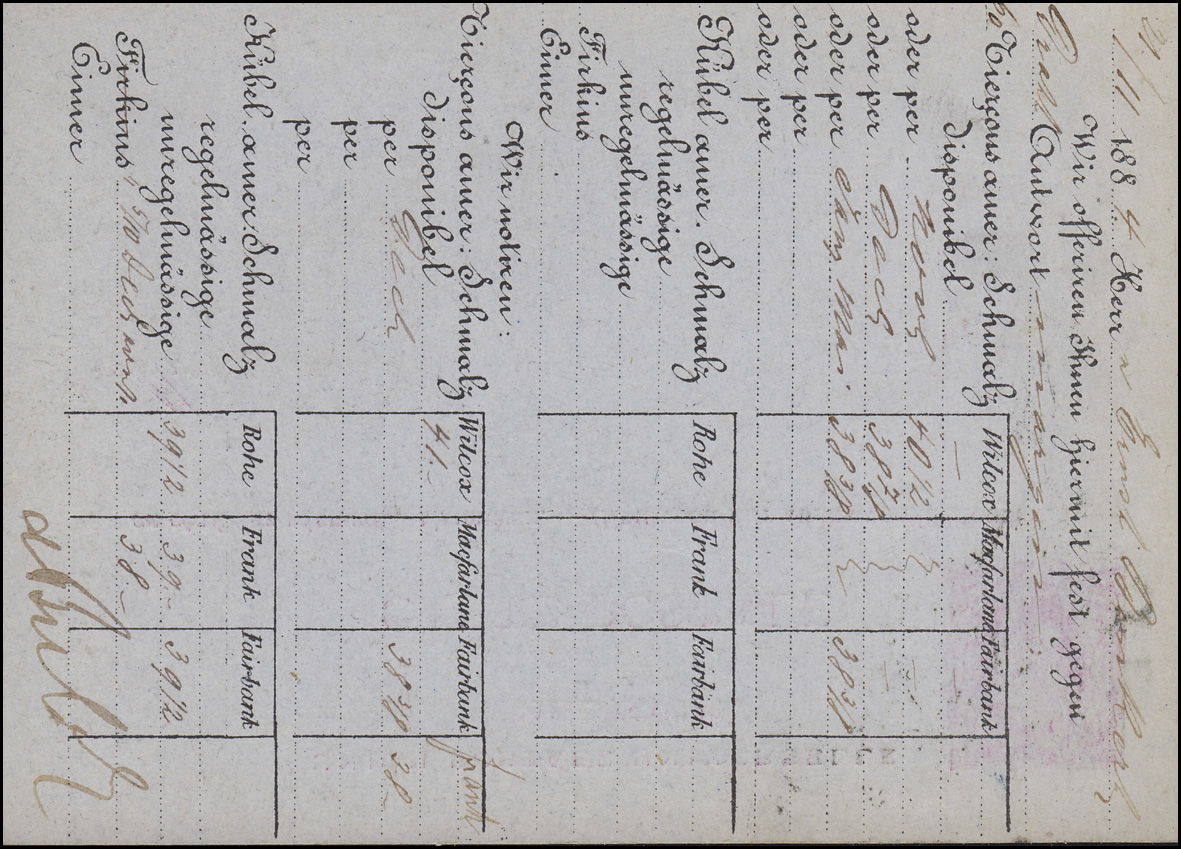 /11 1884 Herr Ernst
Wir offeriren Ihnen hiermit fest gegen
Antwort
Tierçons amer: Schmalz Wilcox Macfarlane Fairbank
disponibel —
oder per 40 1/2
oder per Dec 38 3/4
oder per Jan Mai 38 3/4 38 3/4
oder per
oder per
Kübel amer. Schmalz Rohe Frank Fairbank
regelmässige
unregelmässige
Firkins
Eimer
Wir notiren:
Tierçons amer: Schmalz Wilcox Macfarlane Fairbank
disponibel 41.-
per Dec 38 3/4 38 -
per
per
Kübel amer. Schmalz Rohe Frank Fairbank
regelmässige
unregelmässige 39 1/2 39.- 39 1/2
Firkins 38 -
Eimer